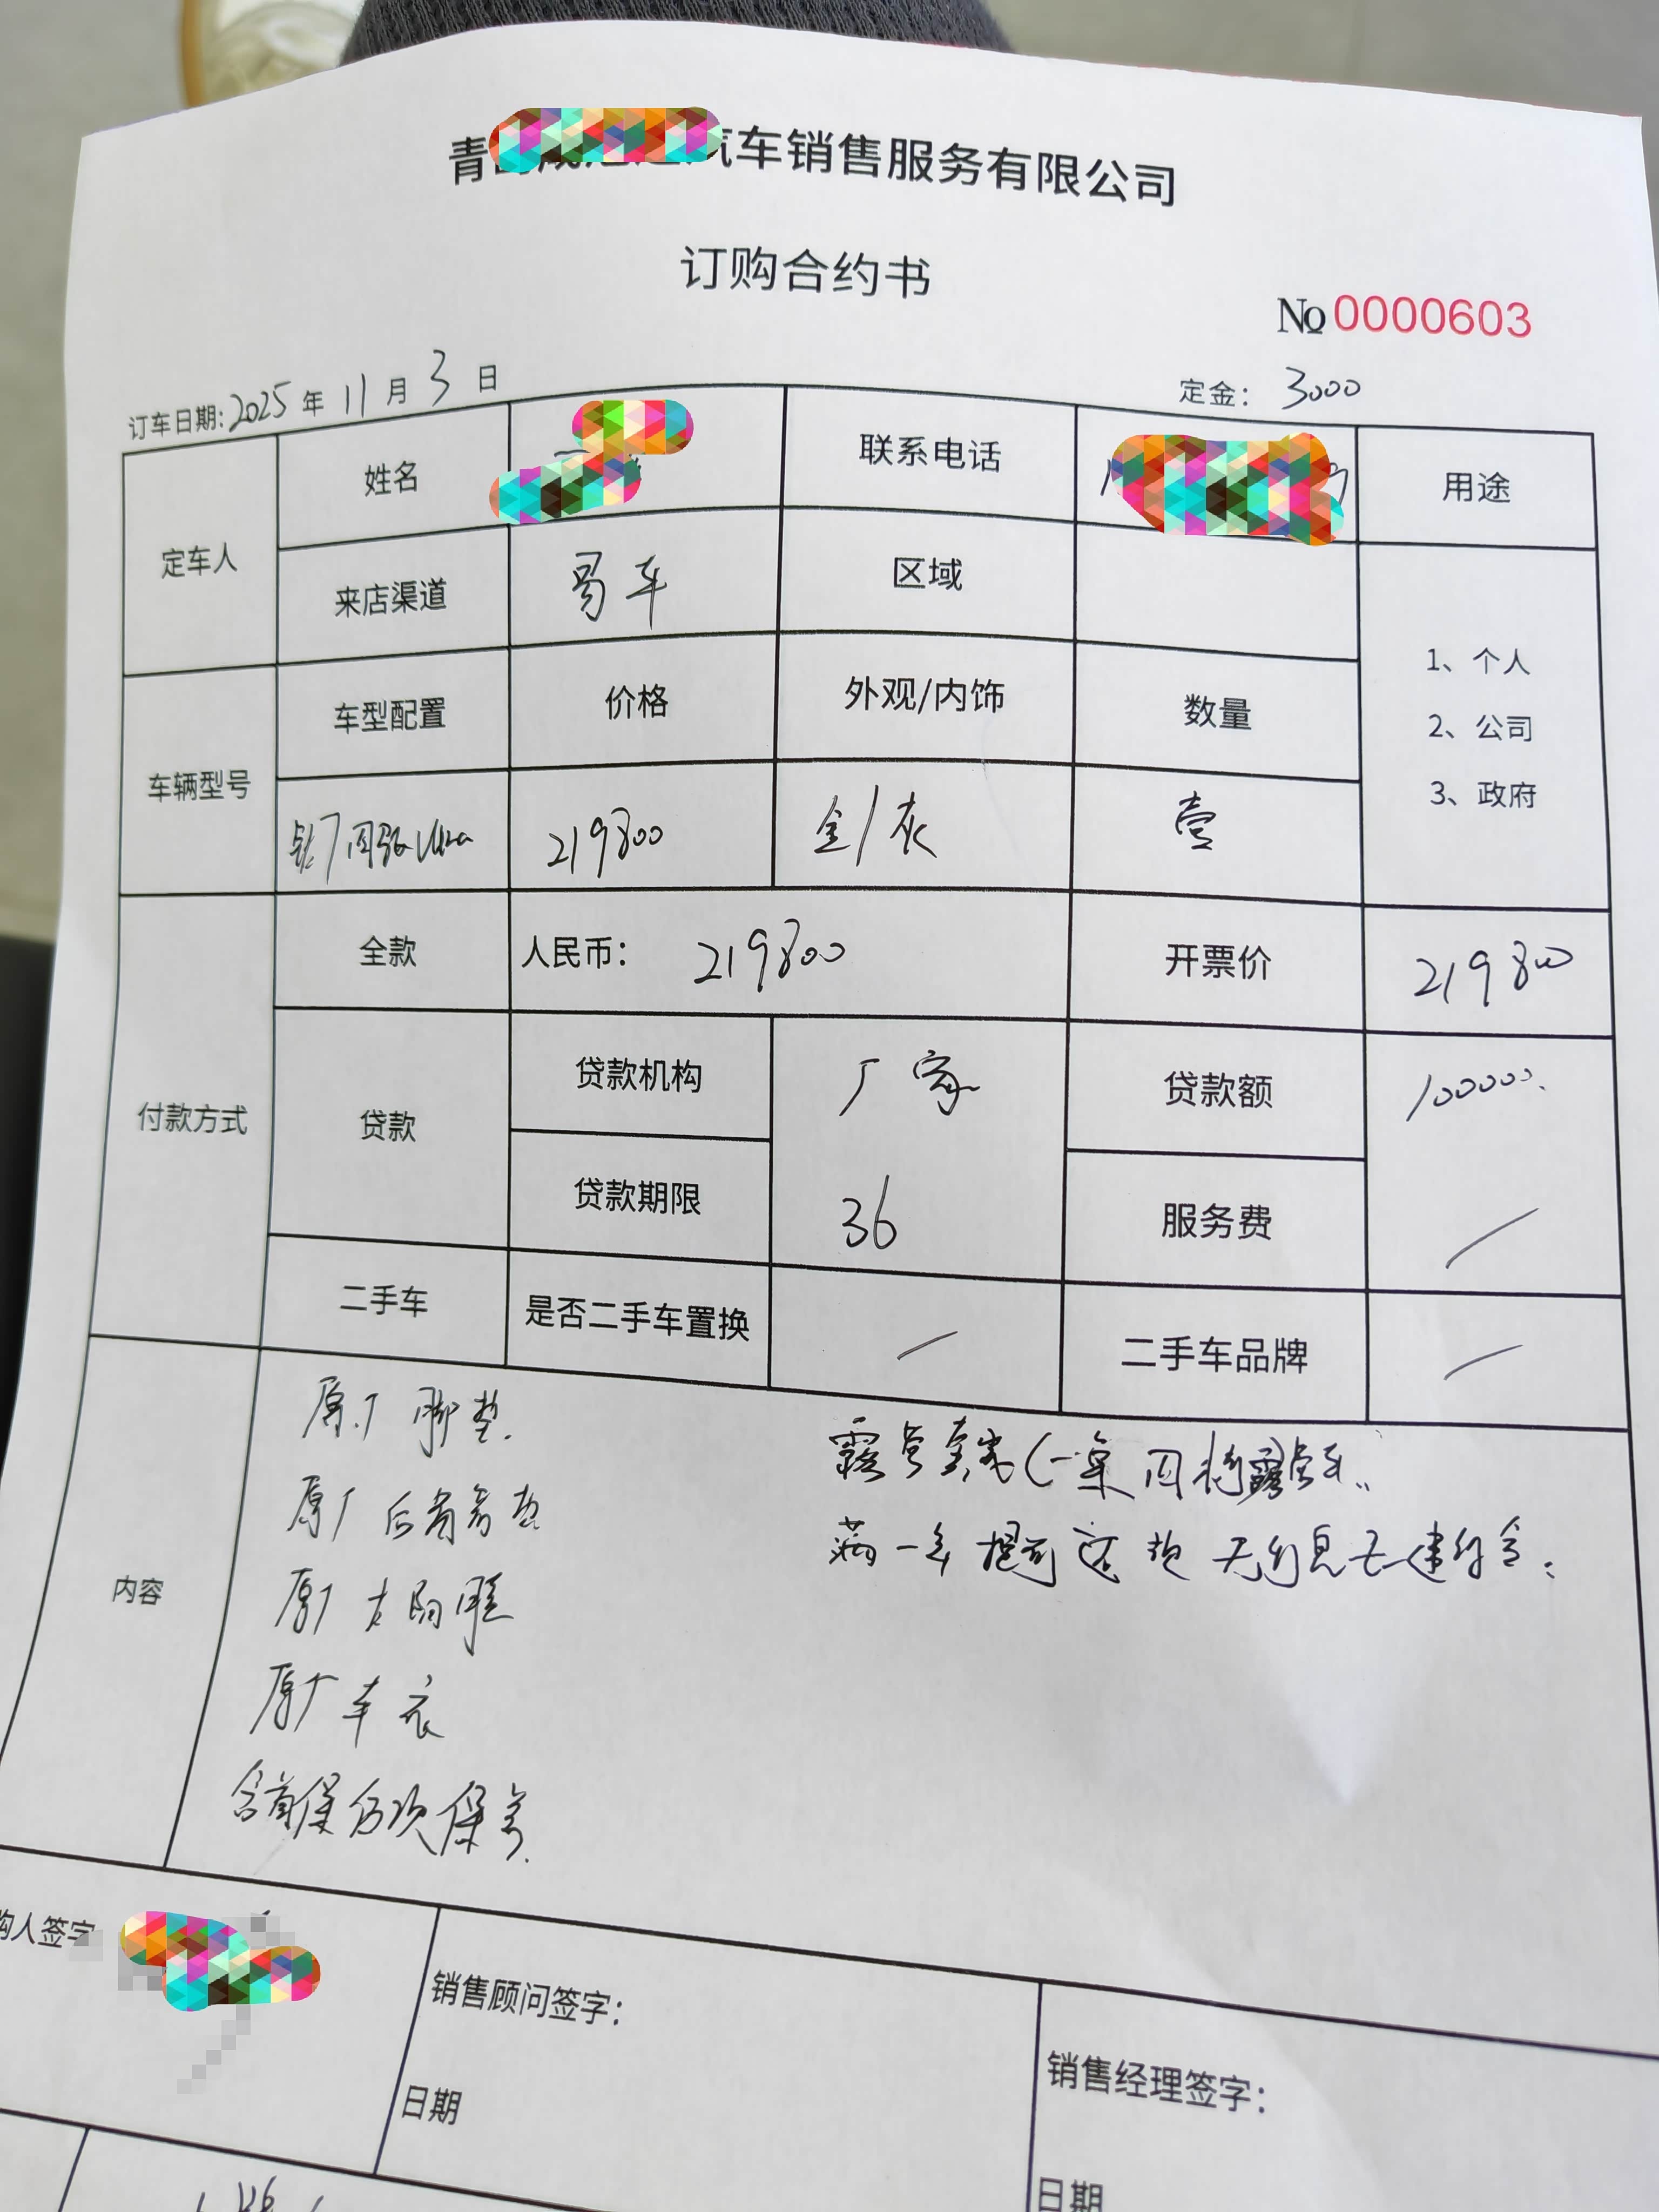 青 汽车销售服务有限公司
订购合约书
No 0000603
订车日期:2025年11月3日 定金：3000
定车人 姓名 联系电话 用途
来店渠道 易车 区域
1、个人
2、公司
3、政府
车辆型号 车型配置 价格 外观/内饰 数量
钛7 四驱Ultra 219800 金/灰 壹
付款方式 全款 人民币：219800 开票价 219800
贷款 贷款机构 厂家 贷款额 100000.
贷款期限 36 服务费 /
二手车 是否二手车置换 / 二手车品牌 /
内容
原厂脚垫.
原厂后备箱垫
原厂太阳膜
原厂车衣
含首保伍次保养.
露营套装(一桌四椅露营车..
满一年提前还款无利息无违约金.
购人签字
销售顾问签字：
日期
销售经理签字：
日期